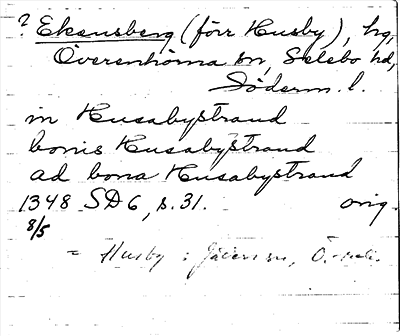 ? Ekensberg (förr Husby), hg,
Överenhörna sn, Selebo hd,
Söderm. l.
in Husabystrand
bonis Husabystrand
ad bona Husabystrand
1348 SD6, s. 31. orig.
8/5
= Husby i